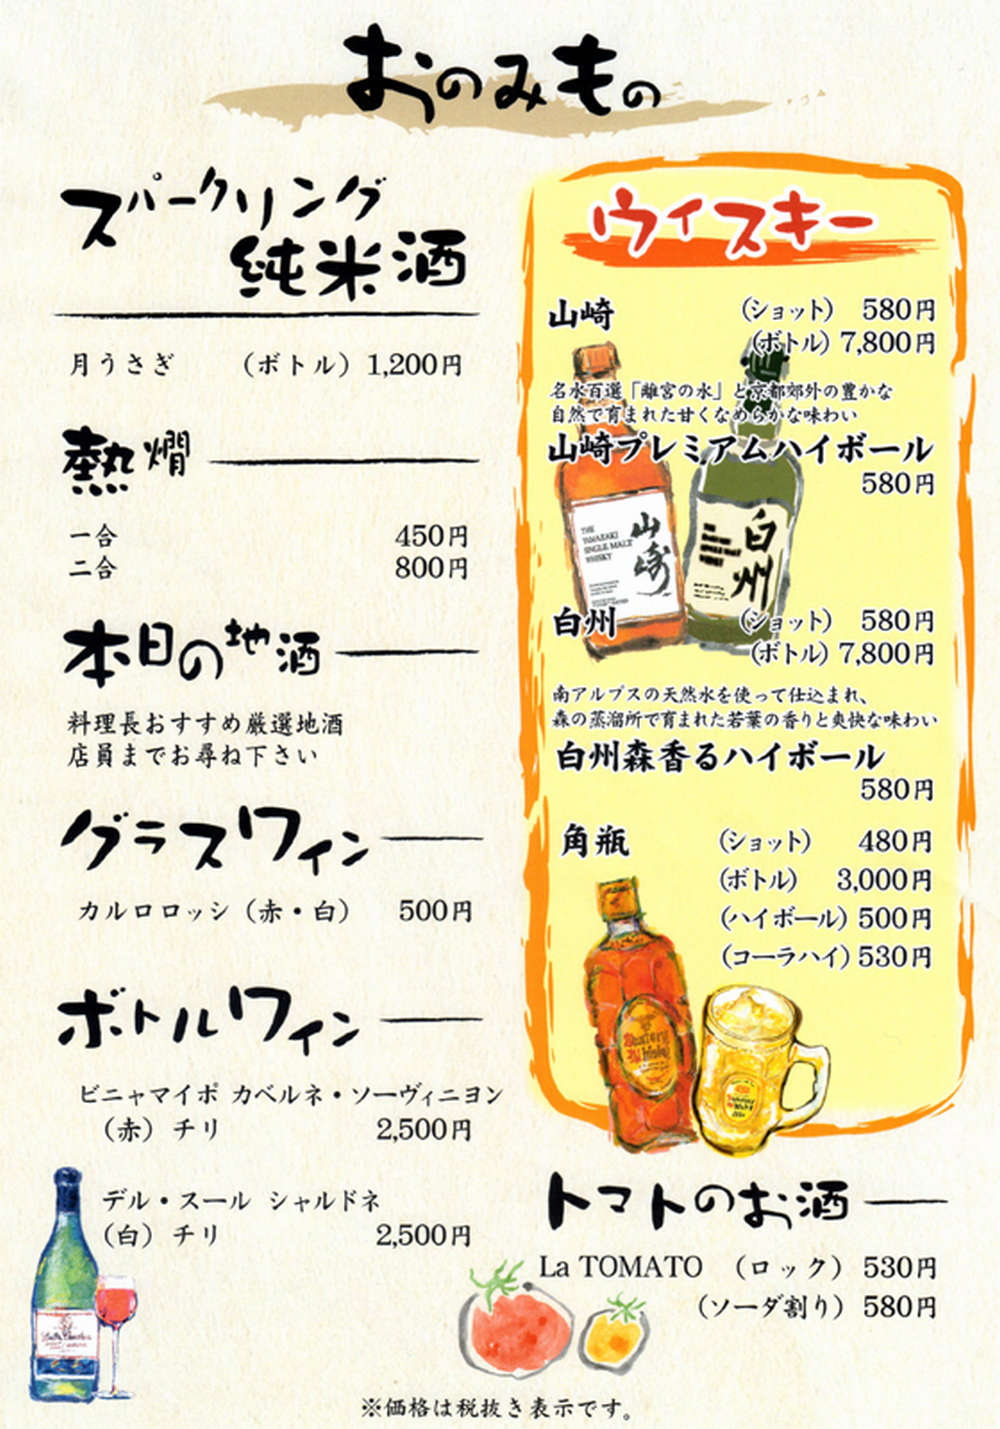 おのみもの
スパークリング
純米酒
月うさぎ （ボトル）1,200円
熱燗
一合 450円
二合 800円
本日の地酒
料理長おすすめ厳選地酒
店員までお尋ね下さい
グラスワイン
カルロロッシ（赤・白） 500円
ボトルワイン
ビニャマイポ カベルネ・ソーヴィニヨン
（赤）チリ 2,500円
デル・スール シャルドネ
（白）チリ 2,500円
ウイスキー
山崎 （ショット） 580円
（ボトル）7,800円
名水百選「離宮の水」と京都郊外の豊かな
自然で育まれた甘くなめらかな味わい
山崎プレミアムハイボール
580円
THE
YAMAZAKI
SINGLE MALT
WHISKY
山崎
白州
白州 （ショット） 580円
（ボトル）7,800円
南アルプスの天然水を使って仕込まれ、
森の蒸溜所で育まれた若葉の香りと爽快な味わい
白州森香るハイボール
580円
角瓶 （ショット） 480円
（ボトル） 3,000円
（ハイボール）500円
（コーラハイ）530円
Suntory
Whisky
トマトのお酒
La TOMATO （ロック） 530円
（ソーダ割り） 580円
※価格は税抜き表示です。